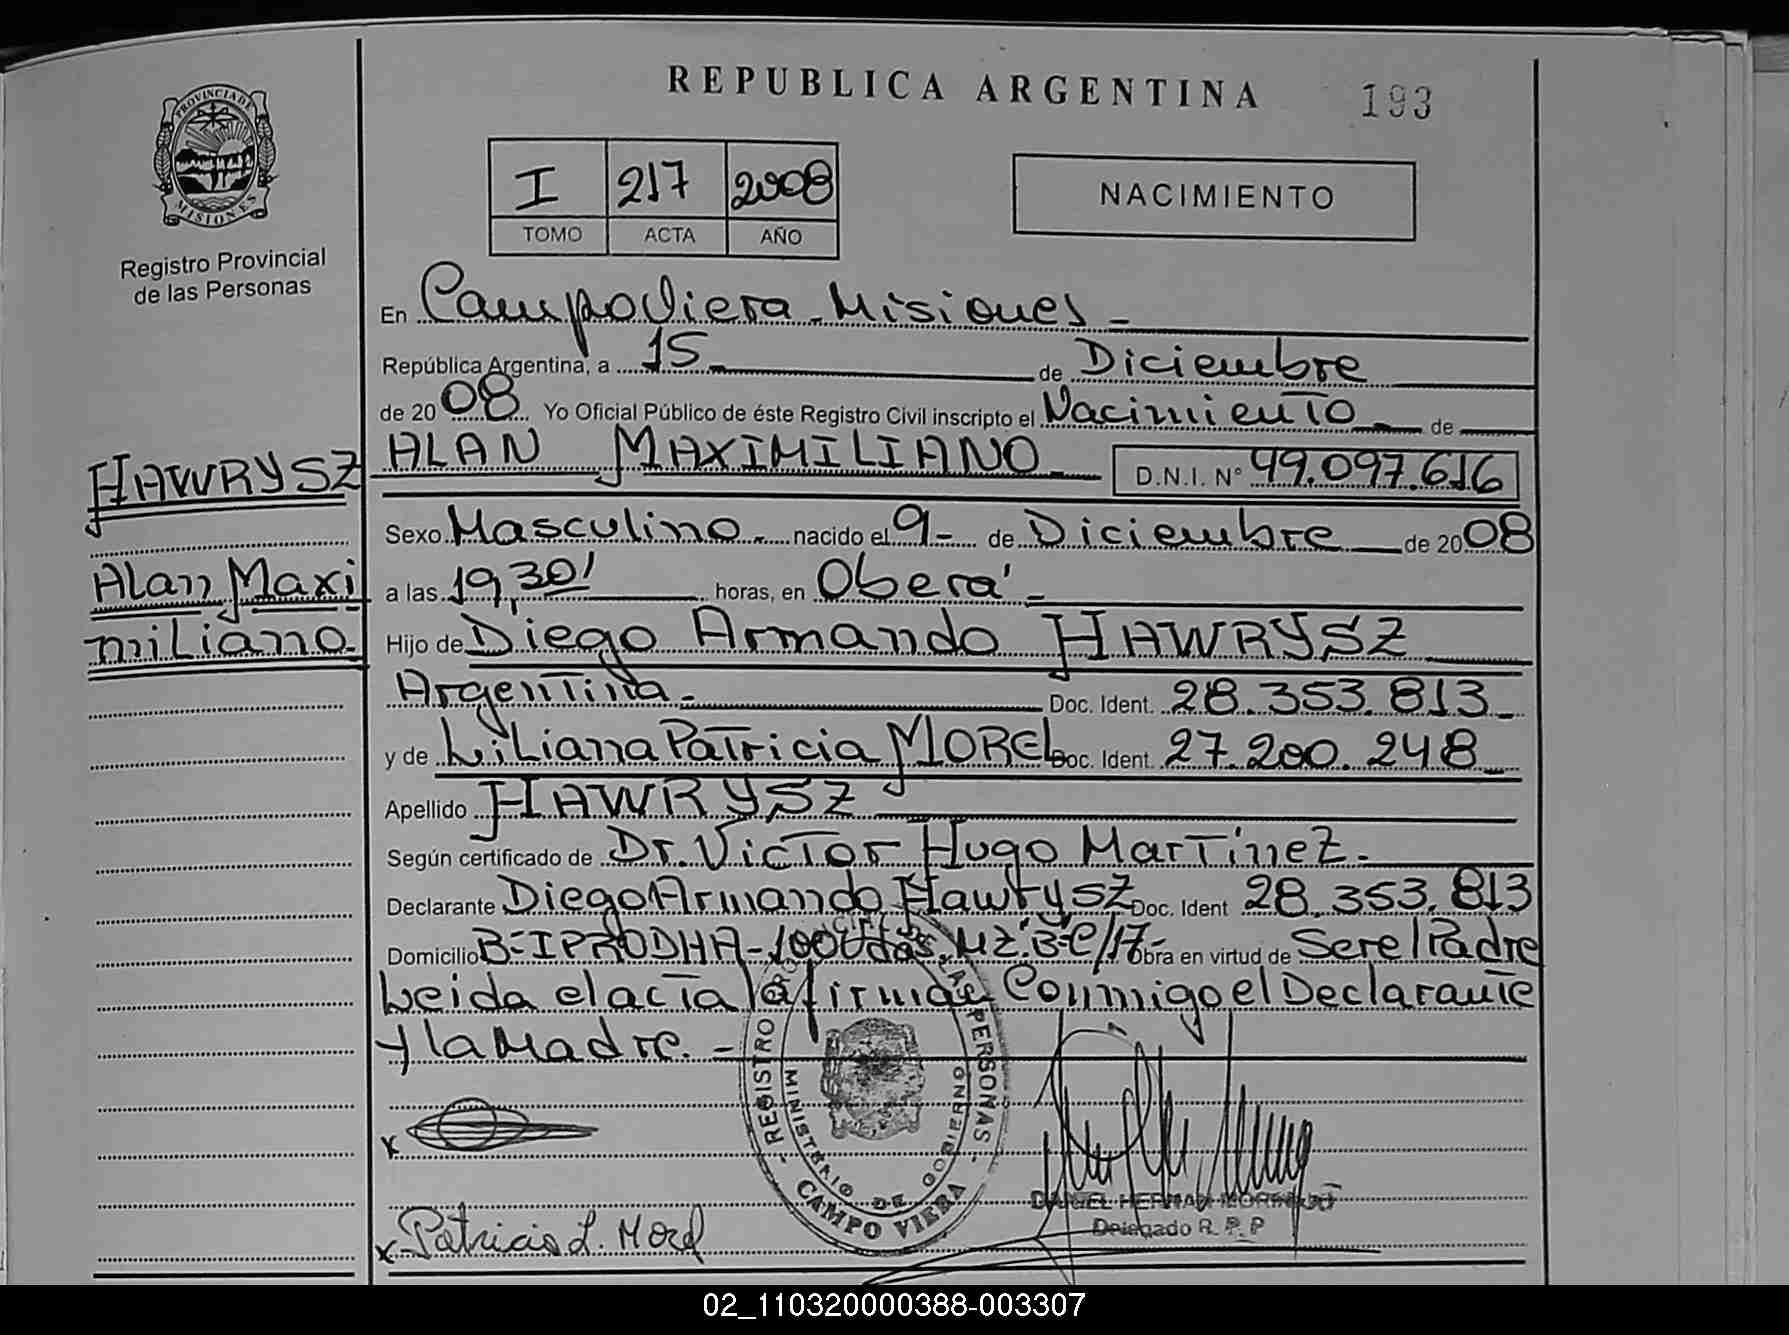 REPUBLICA ARGENTINA
193
PROVINCIA DE MISIONES
Registro Provincial
de las Personas
I 217 2008
TOMO ACTA AÑO
NACIMIENTO
En Campo Viera - Misiones -
República Argentina, a 15 de Diciembre
de 2008 Yo Oficial Público de éste Registro Civil inscripto el Nacimiento de
HAWRYSZ
Alan Maxi
miliano.
ALAN MAXIMILIANO D.N.I. N° 49.097.616
Sexo Masculino. nacido el 9- de Diciembre de 2008
a las 19,30' horas, en Oberá -
Hijo de Diego Armando HAWRYSZ
Argentina - Doc. Ident. 28.353.813
y de Liliana Patricia MOREL Doc. Ident. 27.200.248
Apellido HAWRYSZ
Según certificado de Dr. Victor Hugo Martinez.
Declarante Diego Armando Hawrysz Doc. Ident 28.353.813
Domicilio B-IPRODHA-100 Udas, MZ."B"-C/17- Obra en virtud de Ser el Padre
Leida el acta la firman Conmigo el Declarante
y la Madre. -
x
x Patricia L. Morel
REGISTRO PROVINCIAL DE LAS PERSONAS
MINISTERIO DE GOBIERNO
CAMPO VIERA
DANIEL HERNAN MORINIGO
Delegado R. P. P
02_110320000388-003307